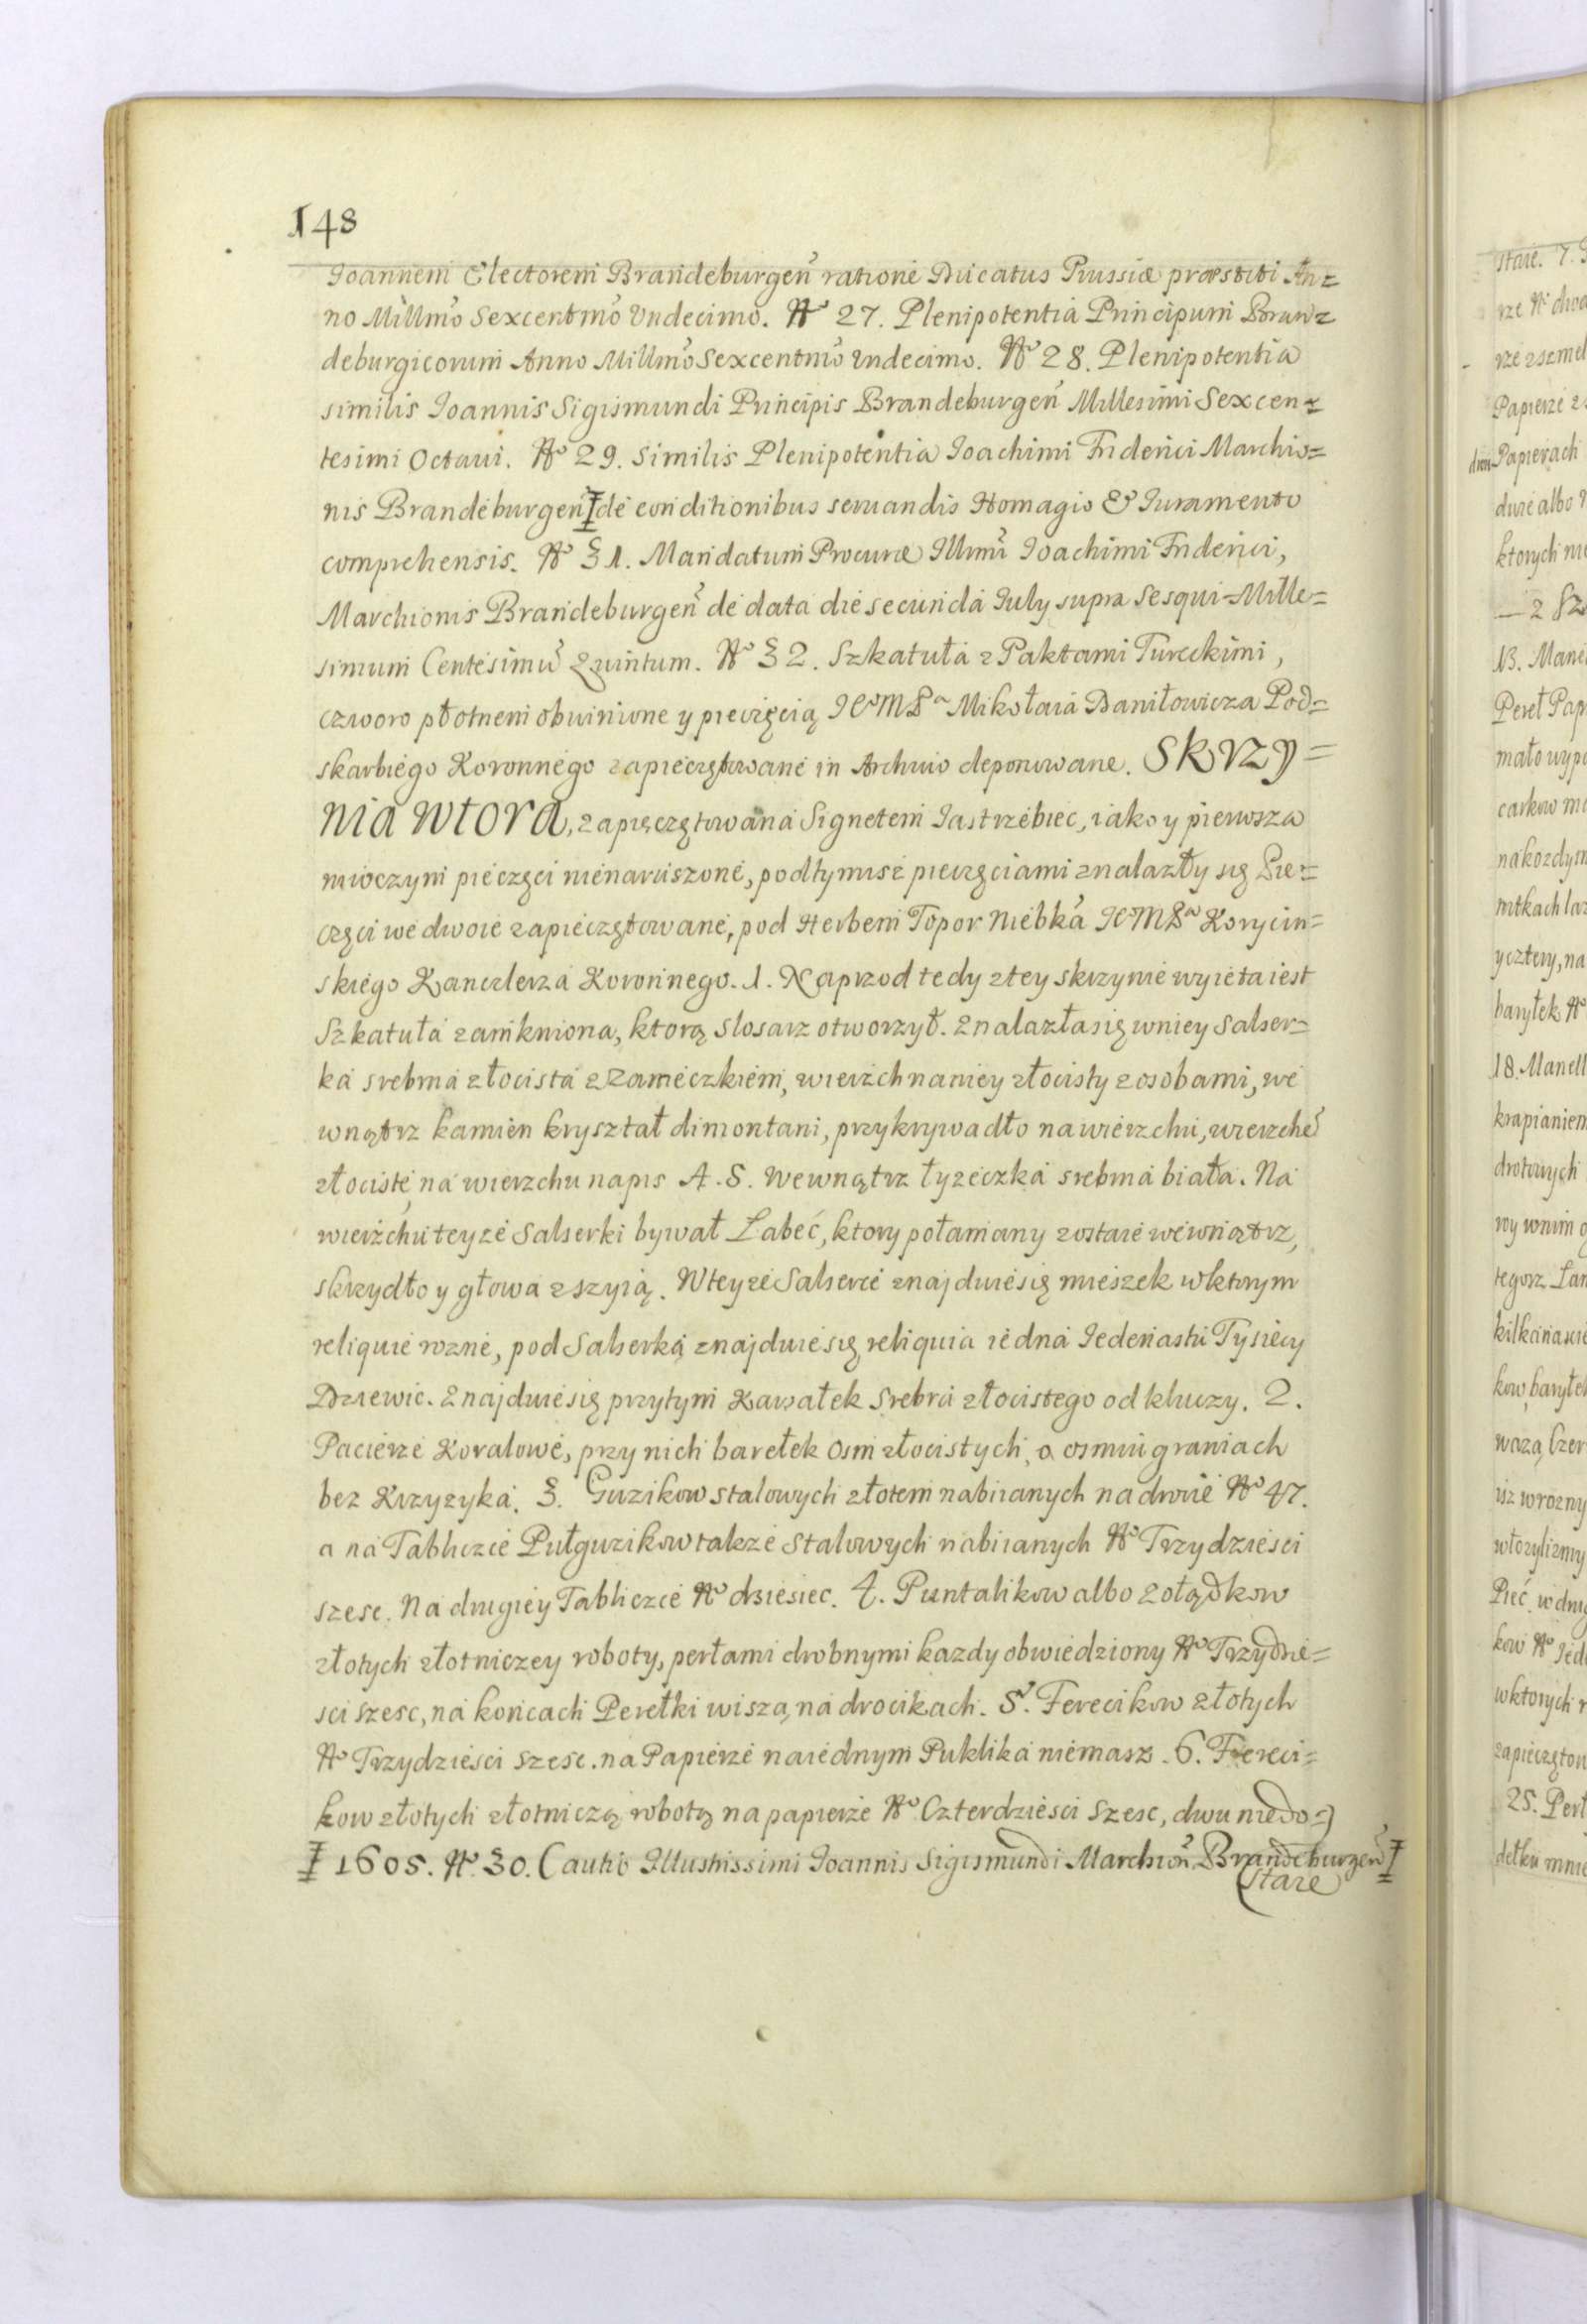 148
Joannem Electorem Brandeburgen̄ ratione Ducatus Prussiæ præstiti An=
no Millmo Sexcentmo Undecimo. No 27. Plenipotentia Principum Bran=
deburgicorum Anno Millmo Sexcentmo Undecimo. No 28. Plenipotentia
similis Joannis Sigismundi Principis Brandeburgen̄ Millesimi Sexcen=
tesimi Octaui. No 29. Similis Plenipotentia Joachimi Friderici Marchio=
nis Brandeburgen̄ ‡ de conditionibus seruandis Homagio & Juramento
comprehensis. No 31. Mandatum Procuræ Illmi Joachimi Friderici,
Marchionis Brandeburgen̄ de data die secunda July supra Sesqui-Mille=
simum Centesimū Quintum. No 32. Szkatuła z Paktami Tureckimi,
czworo płotnem obwinione y pieczęcią JeoMPa Mikołaia Daniłowicza Pod=
skarbiego Koronnego zapieczętowane in Archiuo deponowane. SKRZY=
NIA WTORA, zapieczętowana Signetem Jastrzebiec, iako y pierwsza
mioczym pieczęci nienaruszone, podtymisz pieczęciami znalazły się Pie=
częci we dwoie zapieczętowane, pod Herbem Topor Niebka JeoMPa Korycin=
skiego Kanclerza Koronnego. 1. Naprzod tedy z tey skrzynie wyieta iest
Szkatuła zamkniona, ktorą slosarz otworzył. Znalazła się wniey Salser=
ka srebrna złocista z Zameczkiem, wierzch naniey złocisty z osobami, we
wnątrz kamien kryształ dimontani, przykrywadło na wierzchu, wierzchē
złociste, na wierzchu napis A. S. Wewnątrz łyzeczka srebrna biała. Na
wierzchu teyze Salserki bywał Labeć, ktory połamany zostaie wewnątrz,
skrzydło y głowa z szyią. W teyze Salserce znajduie się mieszek w ktorym
reliquie rozne, pod Salserką znajduie się reliquia iedna Jedenastu Tysięcy
Dziewic. Znajduie się przytym Kawałek Srebra złocistego od kluczy. 2.
Pacierze Koralowe, przy nich barełek osm złocistych, o osmiu graniach
bez Krzyzyka. 3. Guzikow stalowych złotem nabiianych na dwoie No 47.
a na Tabliczce Pułguzikow takze stalowych nabiianych No Trzydziesci
szesc. Na drugiey Tabliczce No dziesiec. 4. Puntalikow albo zołądkow
złotych złotniczey roboty, perłami drobnymi kazdy obwiedziony No Trzydzie=
sci szesc, na koncach Perełki wiszą na drocikach. 5. Ferecikow złotych
No Trzydziesci szesc. na Papierze naiednym Puklika niemasz. 6. Fereci=
kow złotych złotniczą robotą na papierze No Czterdziesci Szesc, dwu niedo=
‡ 1605. No 30. Cautio Illustrissimi Joannis Sigismundi Marchion̄ Brandeburgen̄ ‡
staie